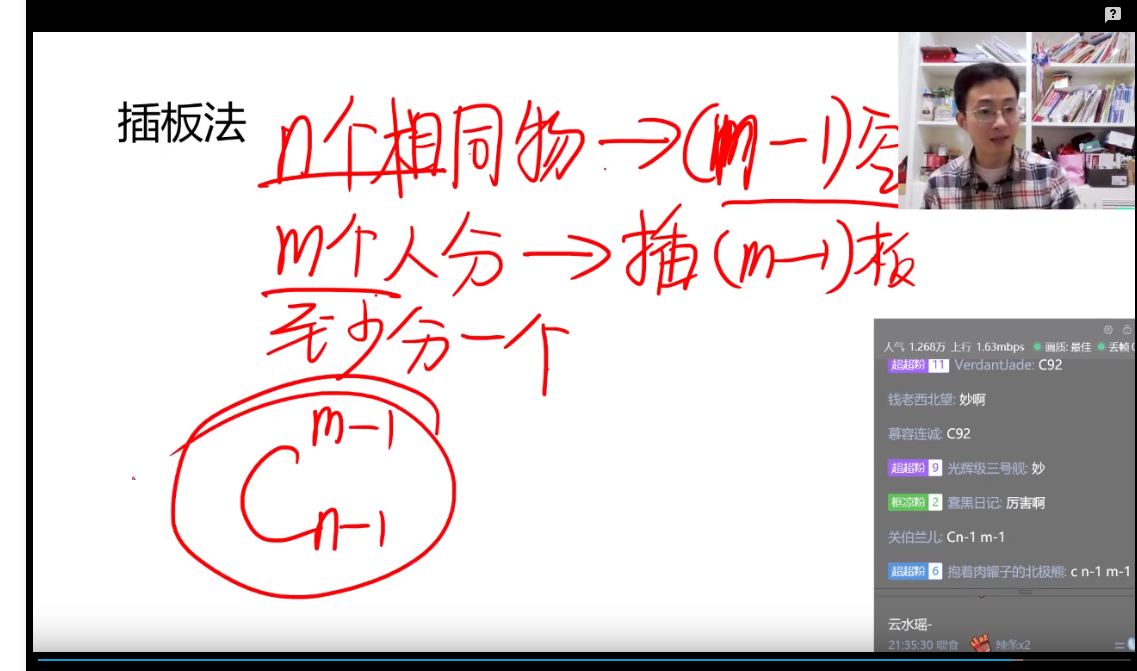 插板法
n个相同物→(m-1)空
m个人分→插(m-1)板
至少分一个
C
m-1
n-1
人气 1.268万 上行 1.63mbps 画质: 最佳 丢帧
超超粉 11 VerdantJade: C92
钱老西北望: 妙啊
慕容连诚: C92
超超粉 9 光辉级三号舰: 妙
框凉粉 2 蠢黑日记: 厉害啊
关伯兰儿: Cn-1 m-1
超超粉 6 抱着肉罐子的北极熊: c n-1 m-1
云水瑶-
21:35:30 喂食 辣条x2